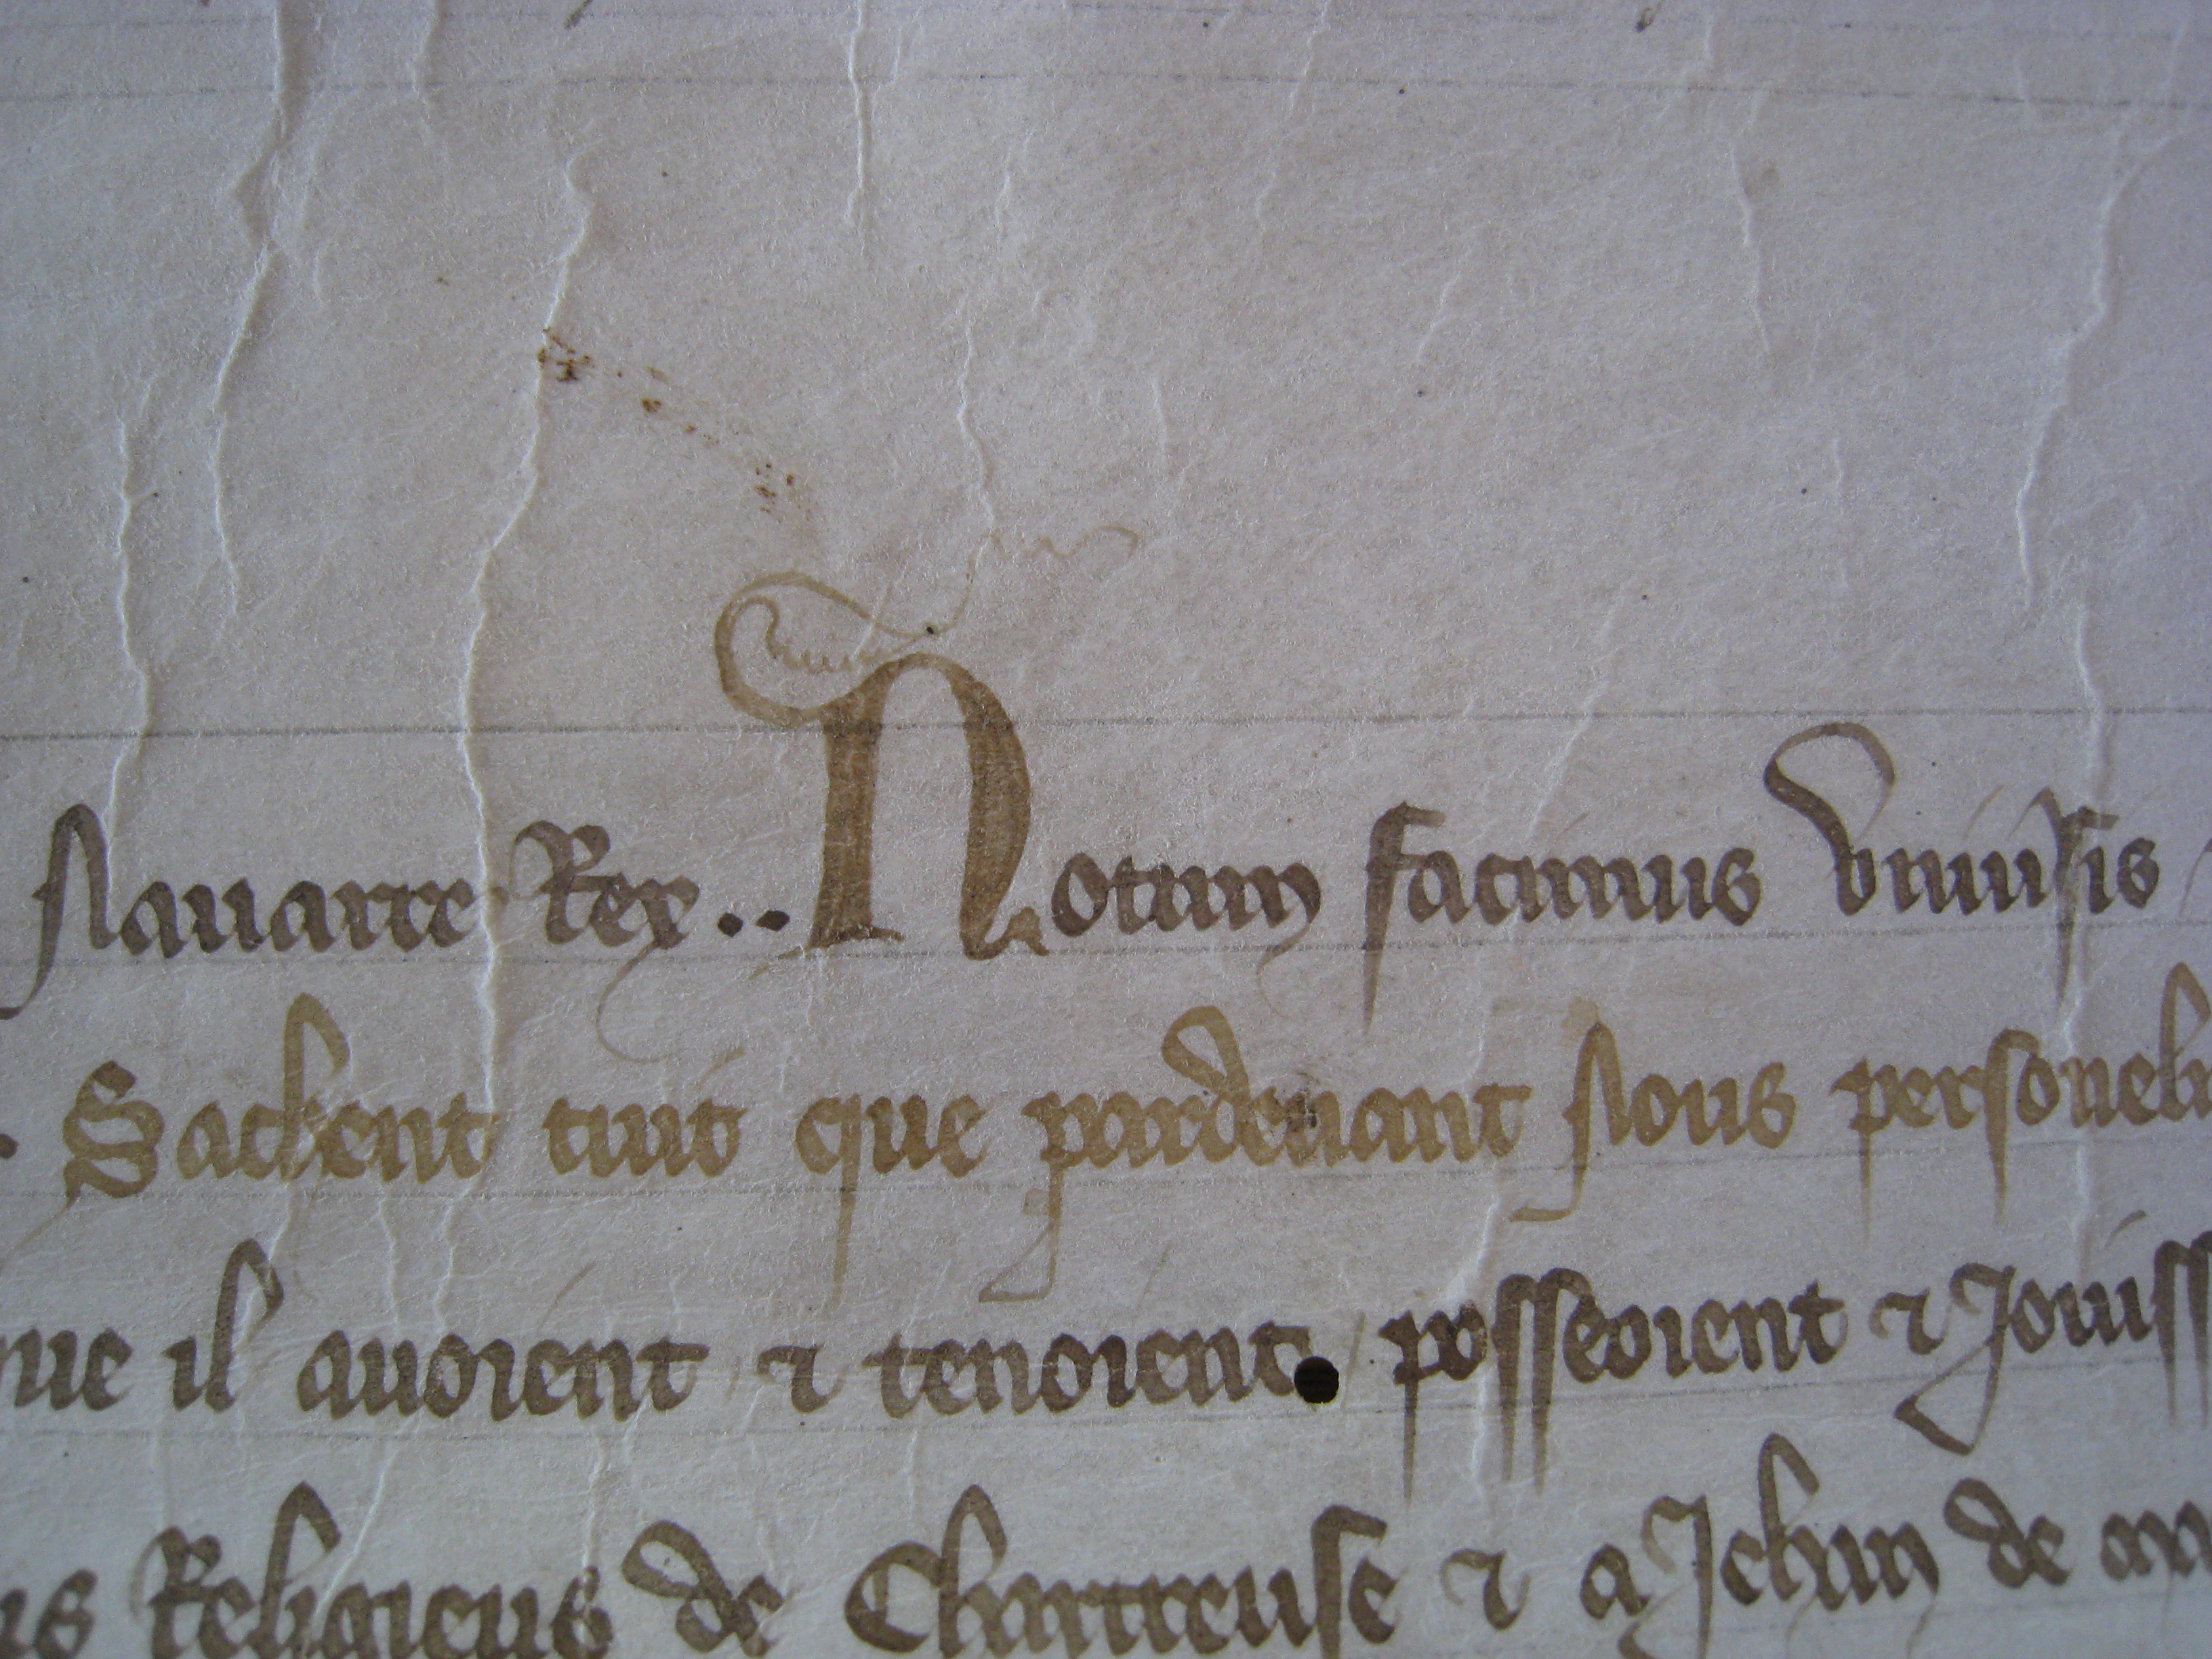 Nauarre Rex .. Notum facimus Vniuersis
. Sachent tuit que pardeuant Nous personelm
que il auoient ⁊ tenoient. posseoient ⁊ Jouiss
us Religieus de Chartreuse ⁊ a Jehan de